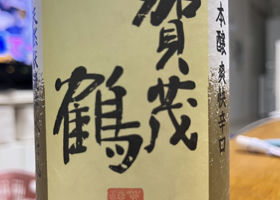 賀茂
鶴
本醸 爽快辛口